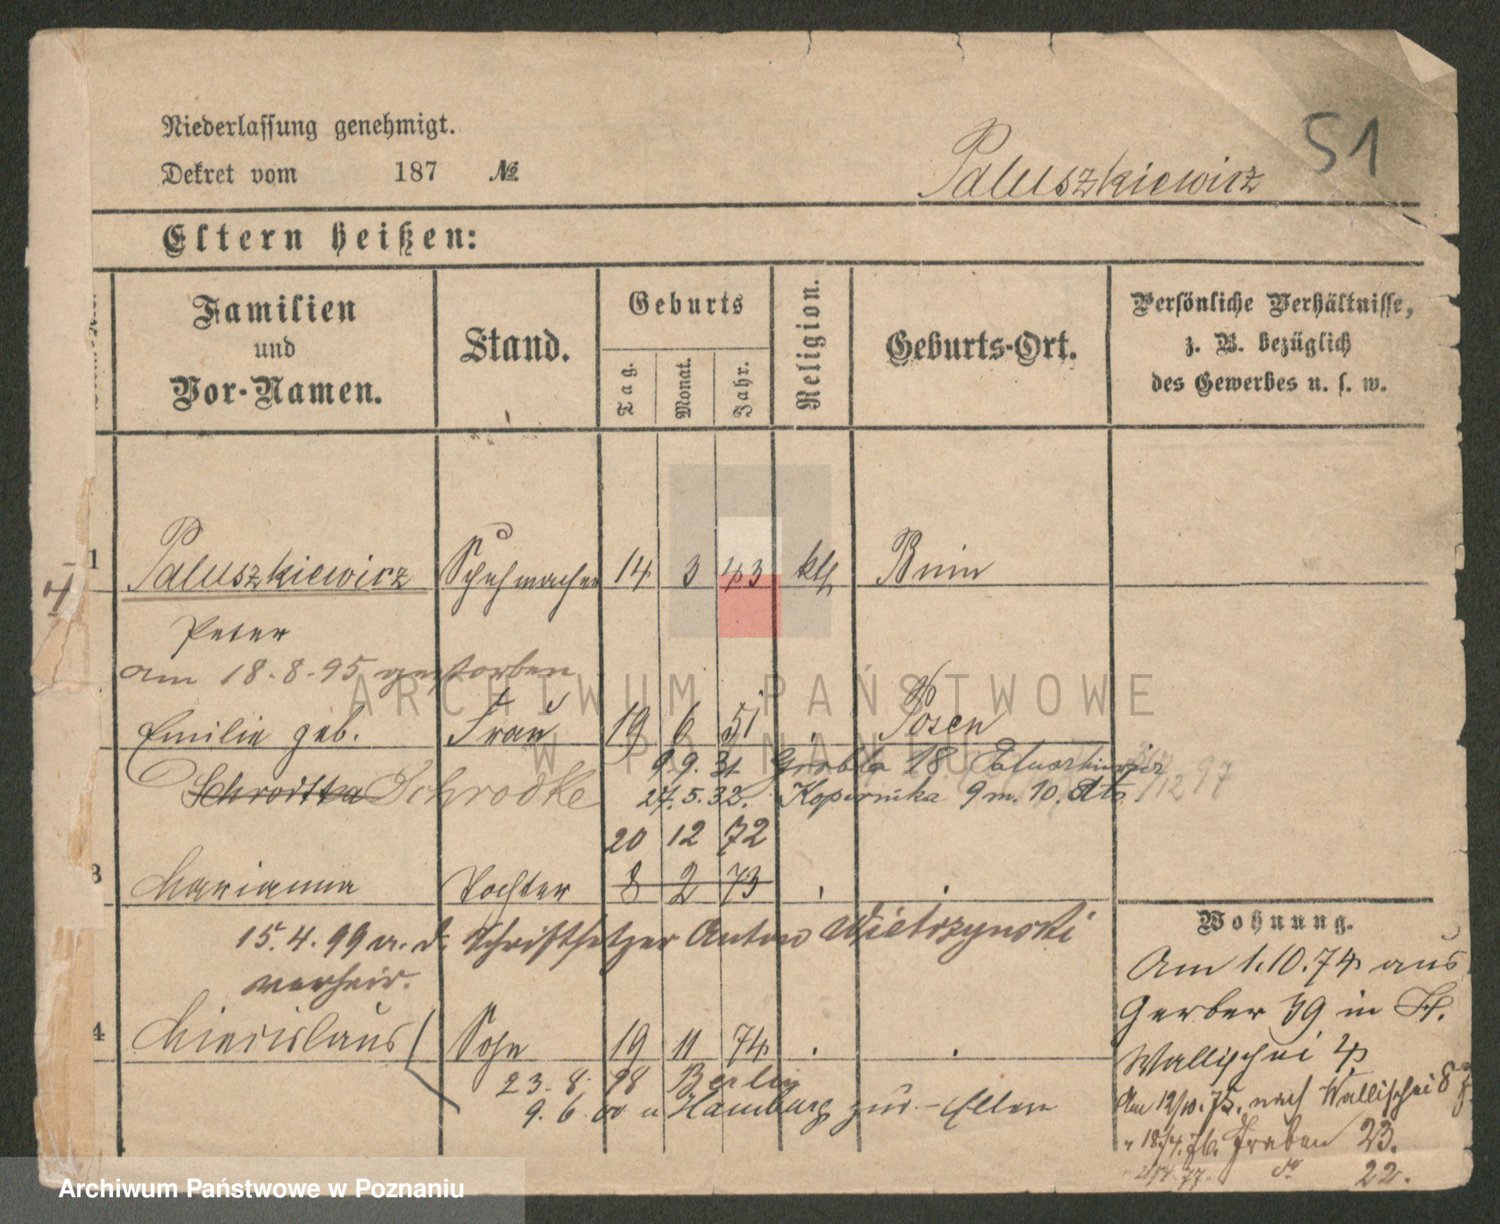 Niederlassung genehmigt.
51
Dekret vom 187 №
Paluszkiewicz
Eltern heißen:
Familien und Vor-Namen.
Stand.
Geburts
Tag.
Monat.
Jahr.
Religion.
Geburts-Ort.
Persönliche Verhältnisse,
z. B. bezüglich
des Gewerbes u. s. w.
1 Paluszkiewicz Schuhmacher 14 3 43 kth Bnin
4
Peter
am 18.8.95 gestorben
Emilie geb. Frau 19 6 51 Posen
9.9.31 Grobla 18 Paluszkiewicz
Schrodtka Schrodke 27.5.32. Kopernika 9 m. 10.
12 97
20 12 72
3 Marianna Tochter 8 2 73 .
15.4.99 m. d. Schriftsetzer Anton Wietrzynski
verheir.
4 Miecislaus Sohn 19 11 74 . .
23.8.98 Berlin
9.6.00 v Hamburg zur. - Eltern
Wohnung.
Am 1.10.74 aus
Gerber 39 in St.
Wallischei 4
Am 12/10.75. nach Wallischei 8
" 18/4.76. Graben 23.
77. do 22.
ARCHIWUM PAŃSTWOWE
W POZNANIU
Archiwum Państwowe w Poznaniu